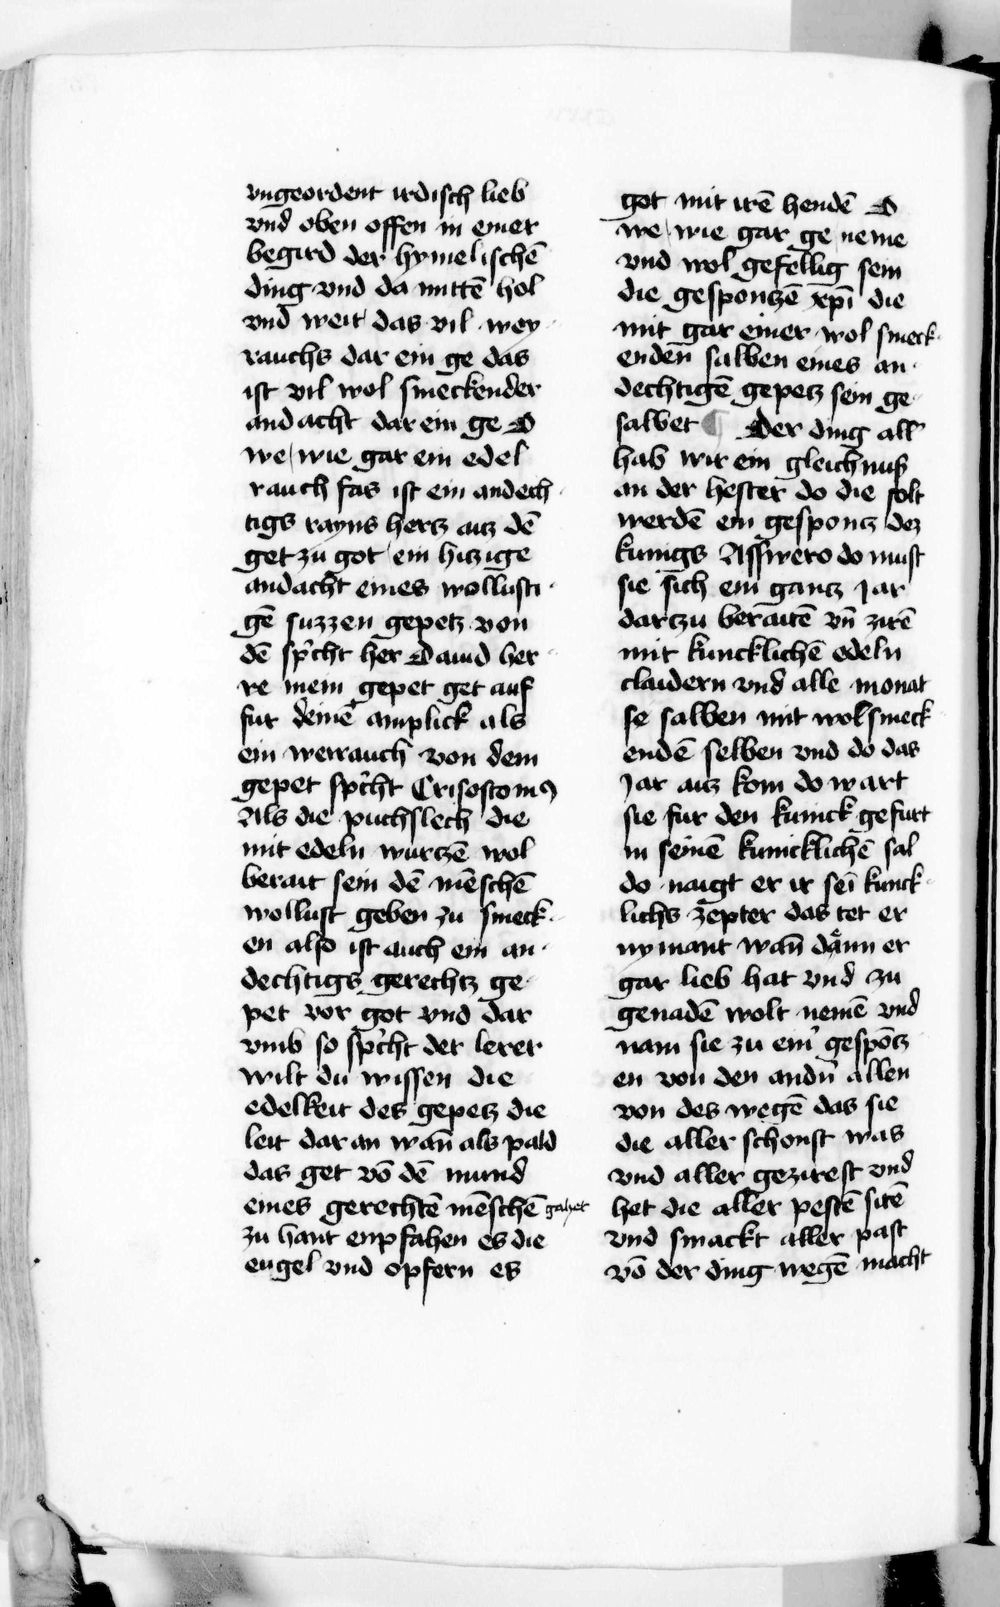 vngeordent irdisch lieb
vnd oben offen in einer
begird der hymelischē
ding vnd da mittē hol
vnd weit das vil wey
rauchs dar ein ge das
ist vil wol smeckender
andacht dar ein ge O
we wie gar ein edel
rauch fas ist ein andech
tigs rayns hertz auz dē
get zu got ein hiczige
andacht eines wollusti
gē suzzen gepetz von
dē sp̓cht her Dauid her
re mein gepet get auf
fur deinē amplick als
ein weirauch von dem
gepet sp̓cht Crisostomꝰ
Als die puchslech die
mit edeln wurczē wol
berait sein dē mēschē
wollust geben zu smeck
en also ist auch ein an
dechtigs gerechtz ge
pet vor got vnd dar
vmb so sp̓cht der lerer
wilt du wissen die
edelkeit des gepetz die
leit dar an wan̄ als pald
das get vō dē mund
eines gerechtē mēschē gahet
zu hant enpfahen es die
engel vnd opfern es
got mit irē hendē O
we wie gar ge neme
vnd wol gefellig sein
die gesponczē xp̄i die
mit gar einer wol smeck
enden̄ salben eines an
dechtigē gepetz sein ge
salbet ¶ Der ding all
hab wir ein gleichnuß
an der hester do die solt
werdē ein gesponcz dez
kunigs Asswero do must
sie sich ein gantz Jar
darczu beraitē vn̄ zirē
mit kuncklichē edeln
claidern vnd alle monat
se salben mit wolsmeck
endē selben vnd do das
Jar auz kom do wart
sie fur den kunick gefurt
in seinē kunicklichē sal
do naigt er ir sei̅ kunck
lichs zepter das tet er
nymant wan̄ dann er
gar lieb hat vnd zu
genadē wolt nemē vnd
nam sie zu eim̓ gespōcz
en von den andn̓ allen
von des wegē das sie
die aller schonst was
vnd aller gezirest vnd
het die aller pestē sitē
vnd smackt aller past
vō der ding wegē macht